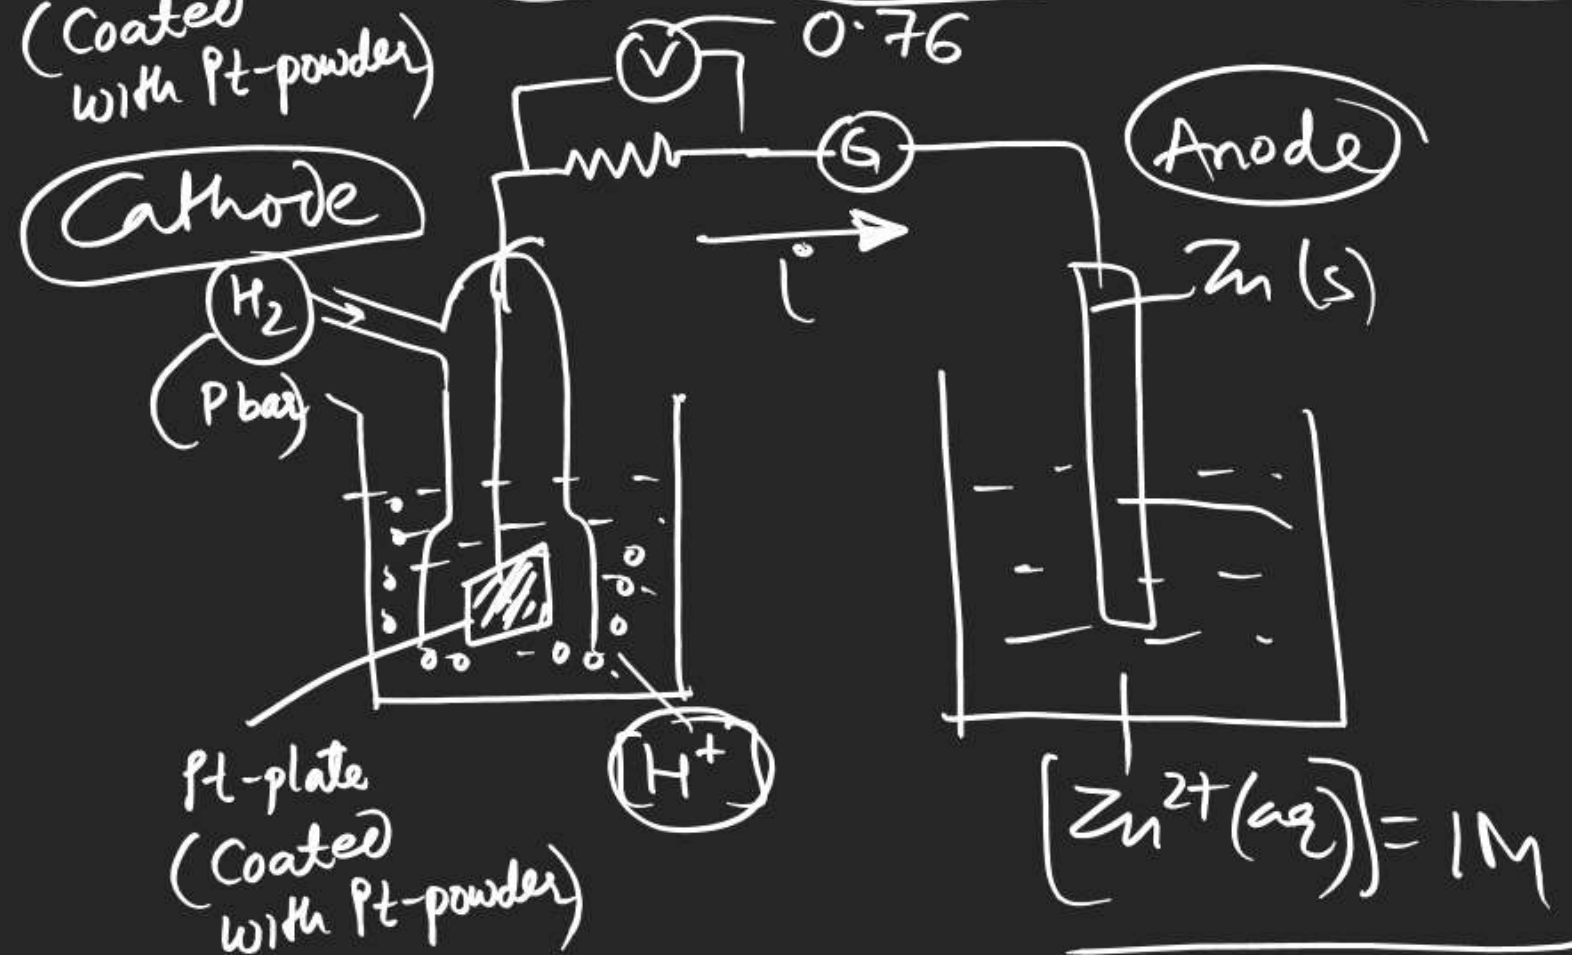 (Coated
with Pt-powder)
V
0.76
G
Anode
Cathode
H₂
(P bar)
i
Zn (s)
Pt-plate
(Coated
with Pt-powder)
[H⁺]
[Zn²⁺(aq)] = 1M